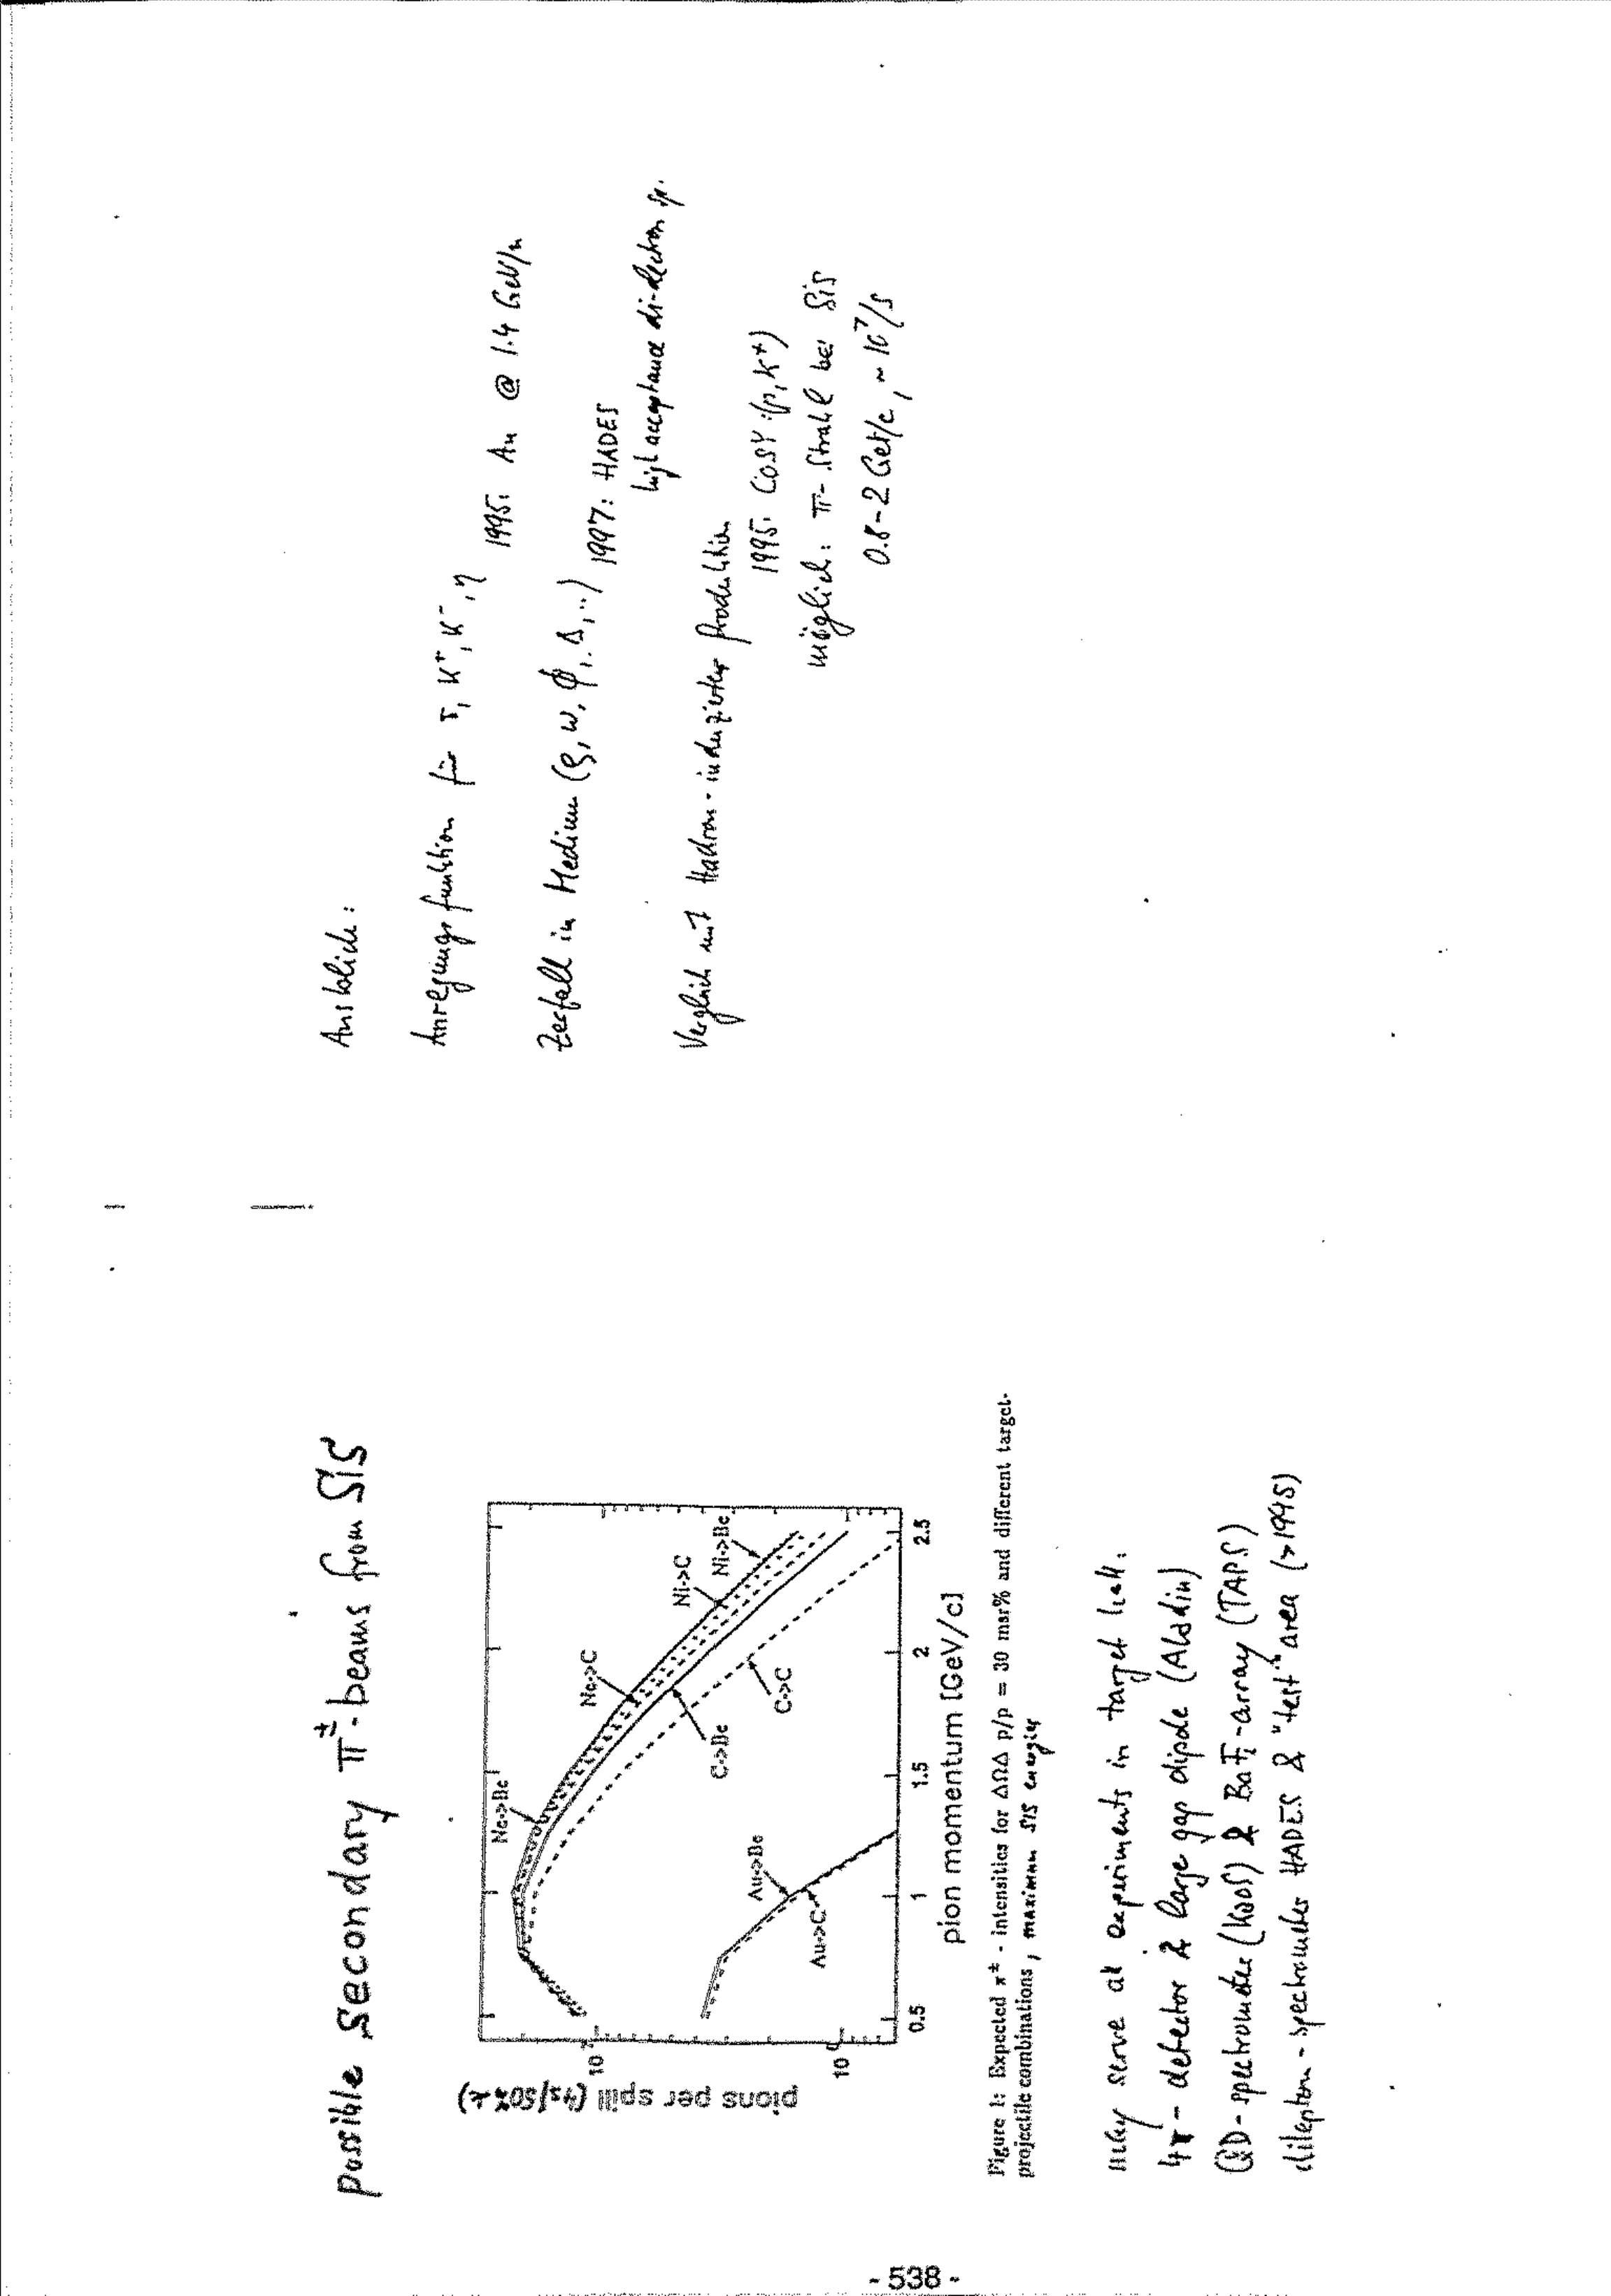 possible secondary π±-beams from SIS
pions per spill (4s/50%)
10
10
Ne->Be
Ne->C
Ni->C
Ni->Be
C->Be
C->C
Au->Be
Au->C
0.5
1
1.5
2
2.5
pion momentum [GeV/c]
Figure 1: Expected π± - intensities for ΔΩΔ p/p = 30 msr% and different target-
projectile combinations, maximum SIS energies
may serve at experiments in target hall:
4π - detector & large gap dipole (Aladin)
QD-spectrometer (KaoS) & BaF2-array (TAPS)
dilepton-spectrometer HADES & "test" area (>1995)
Ausblick:
Anregungsfunktion für π, K+, K-, η
1995: Au @ 1.4 GeV/n
Zerfall in Medium (ρ, ω, ϕ, Δ, ..) 1997: HADES
high acceptance di-electron sp.
Vergleich mit Hadron-induzierter Produktion
1995: COSY: (p, K+)
möglich: π-Strahl bei SIS
0.8-2 GeV/c, ~10^7/s
- 538 -